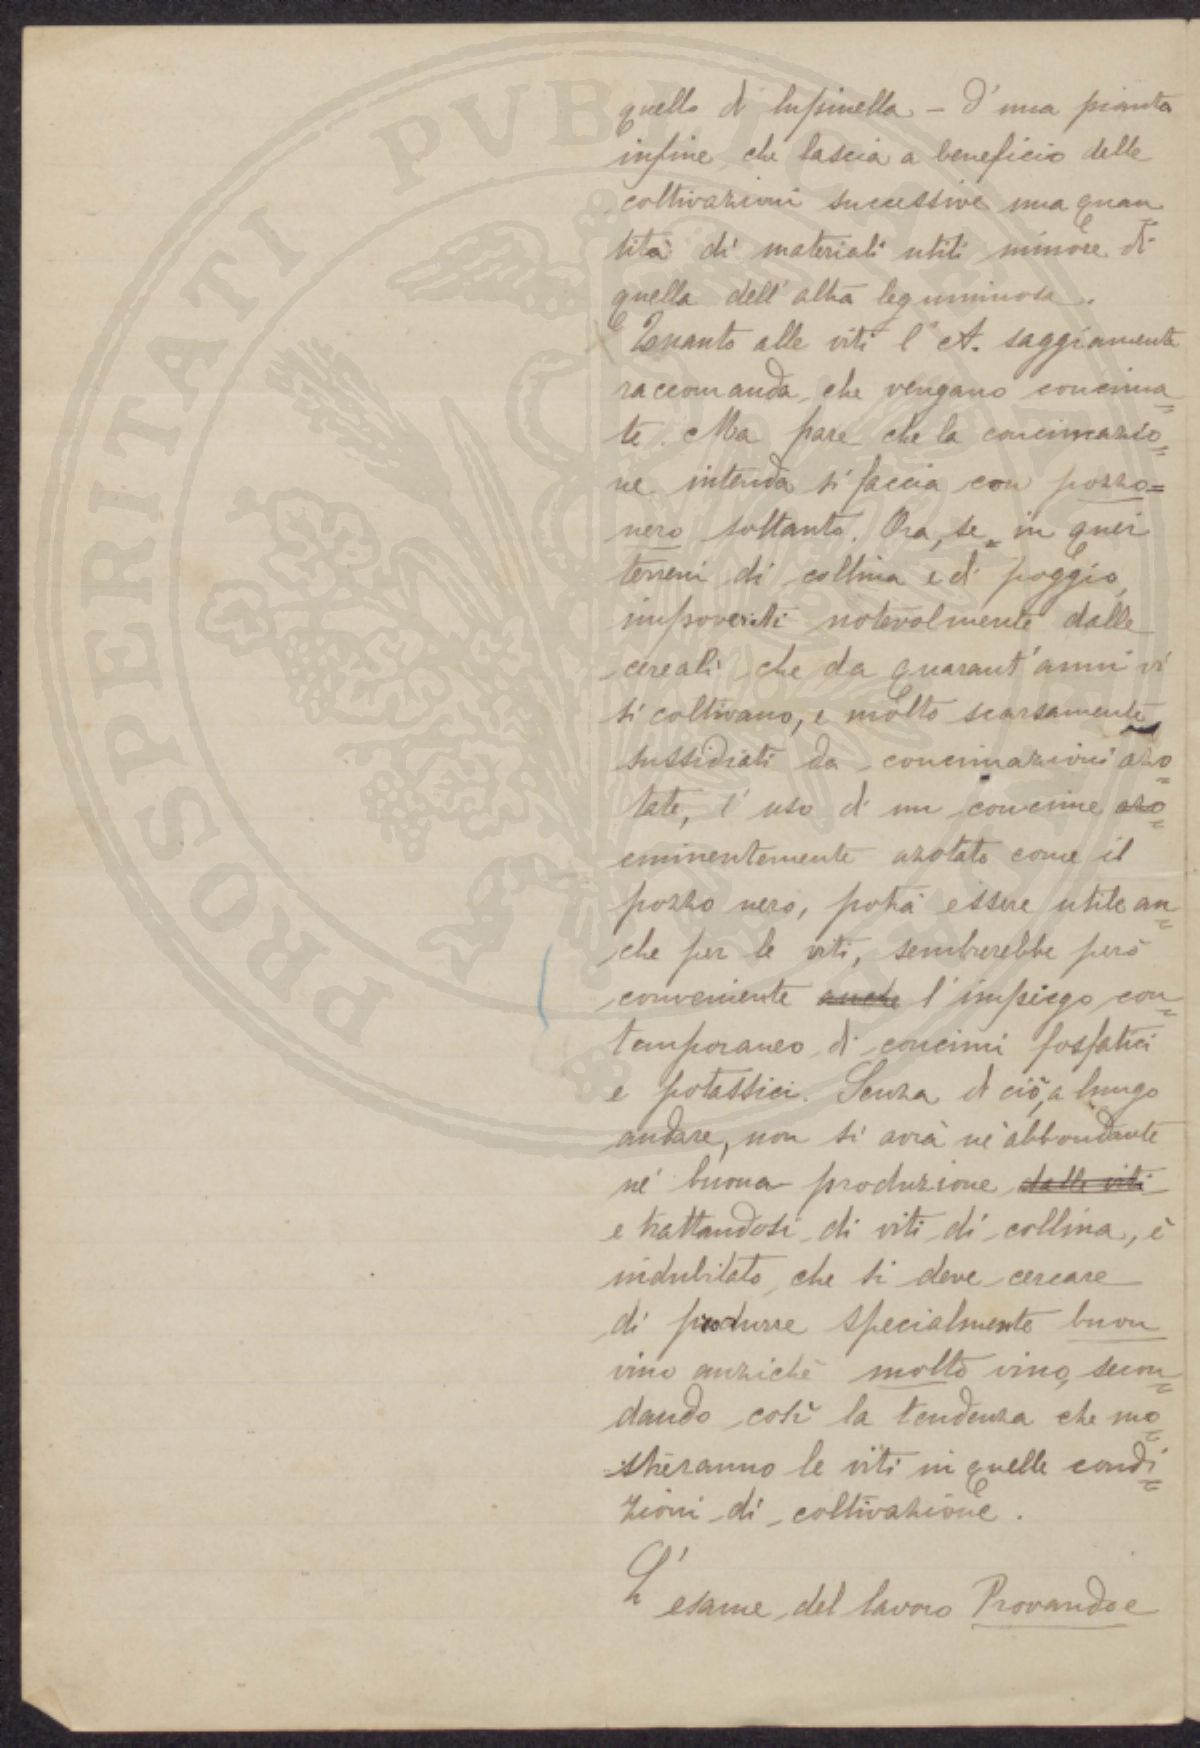 quello di lupinella – D'una pianta
infine che lascia a beneficio delle
coltivazioni successive una quan
tità di materiali utili minore di
quella dell'altra leguminosa.
Quanto alle viti l'A. saggiamente
raccomanda che vengano concima=
te. Ma pare che la concimazio=
ne intenda si faccia con pozzo=
nero soltanto. Ora, se in quei
terreni di collina e di poggio,
impoveriti notevolmente dalle
cereali che da quarant'anni vi
si coltivano, e molto scarsamente
sussidiati da concimazioni azo=
tate, l'uso di un concime azo=
eminentemente azotato come il
pozzo nero, potrà essere utile an=
che per le viti, sembrerebbe però
conveniente anche l'impiego con=
temporaneo di concimi fosfatici
e potassici. Senza di ciò, a lungo
andare, non si avrà nè abbondante
nè buona produzione dalle viti
e trattandosi di viti di collina, è
indubitato che si deve cercare
di produrre specialmente buon
vino anzichè molto vino, secon=
dando così la tendenza che mo=
=streranno le viti in quelle condi=
zioni di coltivazione.
L'esame del lavoro Provando e
PROSPERITATI PUBLICAE